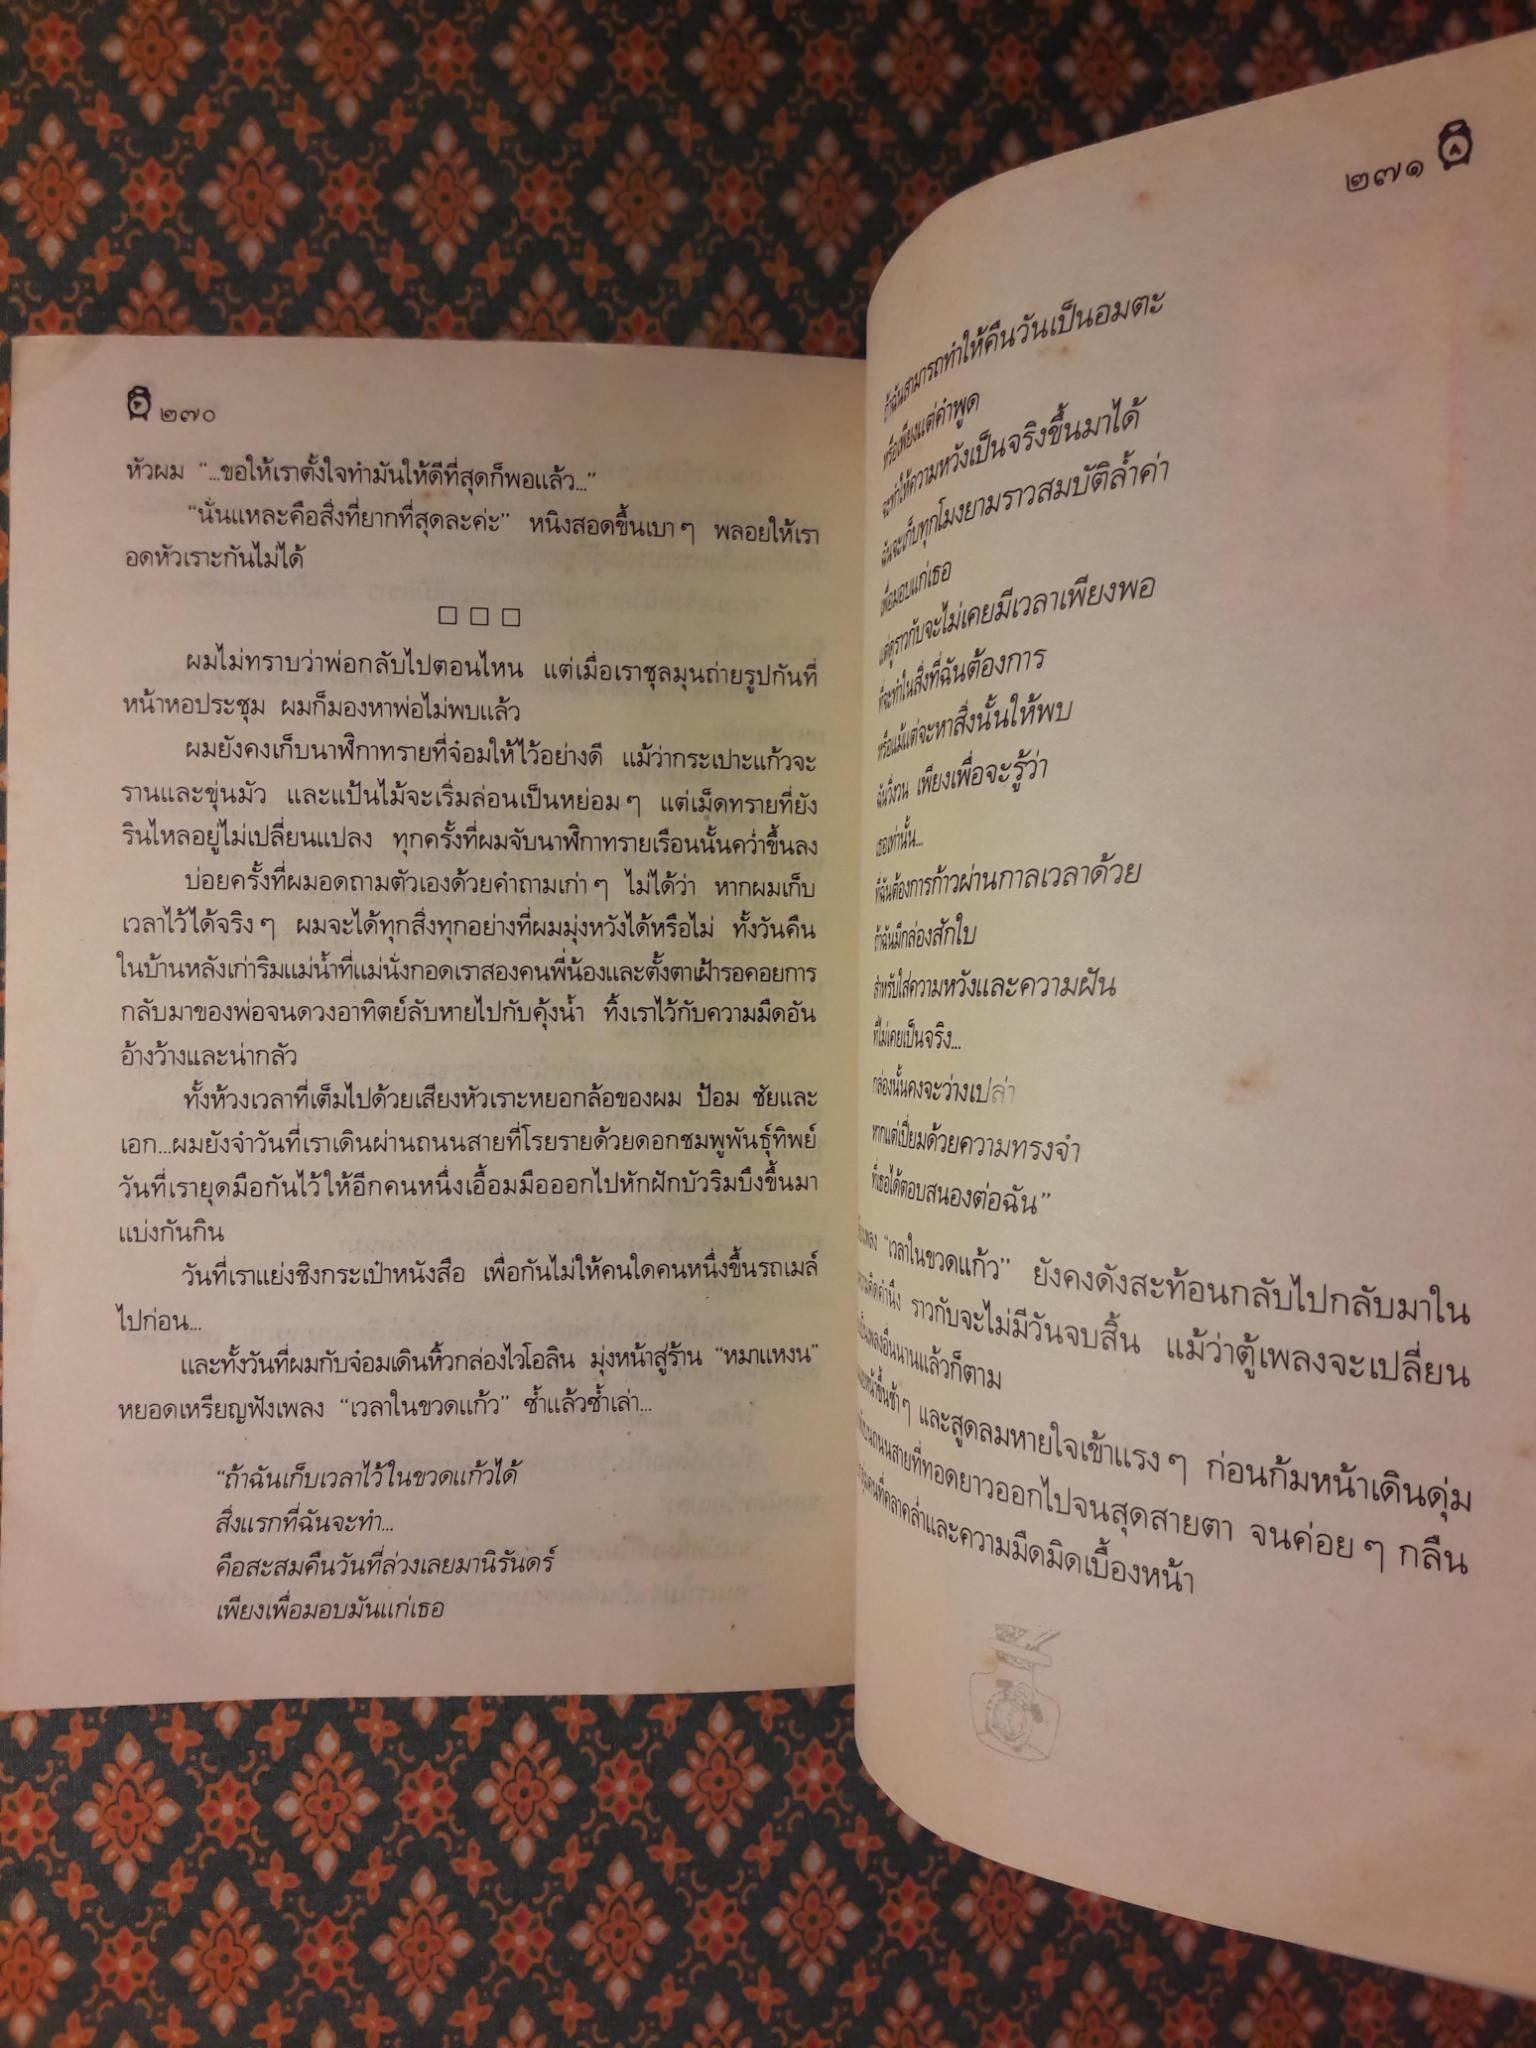 ๒๗๐
หัวผม “...ขอให้เราตั้งใจทำมันให้ดีที่สุดก็พอแล้ว...”
“นั่นแหละคือสิ่งที่ยากที่สุดละค่ะ” หนิงสอดขึ้นเบาๆ พลอยให้เรา
อดหัวเราะกันไม่ได้
ผมไม่ทราบว่าพ่อกลับไปตอนไหน แต่เมื่อเราชุลมุนถ่ายรูปกันที่
หน้าหอประชุม ผมก็มองหาพ่อไม่พบแล้ว
ผมยังคงเก็บนาฬิกาทรายที่จ๋อมให้ไว้อย่างดี แม้ว่ากระเปาะแก้วจะ
รานและขุ่นมัว และแป้นไม้จะเริ่มล่อนเป็นหย่อมๆ แต่เม็ดทรายที่ยัง
รินไหลอยู่ไม่เปลี่ยนแปลง ทุกครั้งที่ผมจับนาฬิกาทรายเรือนนั้นคว่ำขึ้นลง
บ่อยครั้งที่ผมอดถามตัวเองด้วยคำถามเก่าๆ ไม่ได้ว่า หากผมเก็บ
เวลาไว้ได้จริงๆ ผมจะได้ทุกสิ่งทุกอย่างที่ผมมุ่งหวังได้หรือไม่ ทั้งวันคืน
ในบ้านหลังเก่าริมแม่น้ำที่แม่นั่งกอดเราสองคนพี่น้องและตั้งตาเฝ้ารอคอยการ
กลับมาของพ่อจนดวงอาทิตย์ลับหายไปกับคุ้งน้ำ ทิ้งเราไว้กับความมืดอัน
อ้างว้างและน่ากลัว
ทั้งห้วงเวลาที่เต็มไปด้วยเสียงหัวเราะหยอกล้อของผม ป้อม ชัยและ
เอก...ผมยังจำวันที่เราเดินผ่านถนนสายที่โรยรายด้วยดอกชมพูพันธุ์ทิพย์
วันที่เรายุดมือกันไว้ให้อีกคนหนึ่งเอื้อมมือออกไปหักฝักบัวริมบึงขึ้นมา
แบ่งกันกิน
วันที่เราแย่งชิงกระเป๋าหนังสือ เพื่อกันไม่ให้คนใดคนหนึ่งขึ้นรถเมล์
ไปก่อน...
และทั้งวันที่ผมกับจ๋อมเดินหิ้วกล่องไวโอลิน มุ่งหน้าสู่ร้าน “หมาแหงน”
หยอดเหรียญฟังเพลง “เวลาในขวดแก้ว” ซ้ำแล้วซ้ำเล่า...
“ถ้าฉันเก็บเวลาไว้ในขวดแก้วได้
สิ่งแรกที่ฉันจะทำ...
คือสะสมคืนวันที่ล่วงเลยมานิรันดร์
เพียงเพื่อมอบมันแก่เธอ
๒๗๑
ถ้าฉันสามารถทำให้คืนวันเป็นอมตะ
หรือเพียงแต่คำพูด
จะทำให้ความหวังเป็นจริงขึ้นมาได้
ฉันจะเก็บทุกโมงยามราวสมบัติล้ำค่า
เพื่อมอบแก่เธอ
แต่ดูราวกับจะไม่เคยมีเวลาเพียงพอ
ที่จะทำในสิ่งที่ฉันต้องการ
หรือแม้แต่จะหาสิ่งนั้นให้พบ
ฉันวิ่งวน เพียงเพื่อจะรู้ว่า
เธอเท่านั้น...
ที่ฉันต้องการก้าวผ่านกาลเวลาด้วย
ถ้าฉันมีกล่องสักใบ
สำหรับใส่ความหวังและความฝัน
ที่ไม่เคยเป็นจริง...
กล่องนั้นคงจะว่างเปล่า
หากแต่เปี่ยมด้วยความทรงจำ
ที่เธอได้ตอบสนองต่อฉัน”
เพลง “เวลาในขวดแก้ว” ยังคงดังสะท้อนกลับไปกลับมาใน
คิดคำนึง ราวกับจะไม่มีวันจบสิ้น แม้ว่าตู้เพลงจะเปลี่ยน
เป็นเพลงอื่นนานแล้วก็ตาม
หน้าขึ้นช้าๆ และสูดลมหายใจเข้าแรงๆ ก่อนก้มหน้าเดินดุ่ม
ถนนสายที่ทอดยาวออกไปจนสุดสายตา จนค่อยๆ กลืน
คนที่คลาคล่ำและความมืดมิดเบื้องหน้า